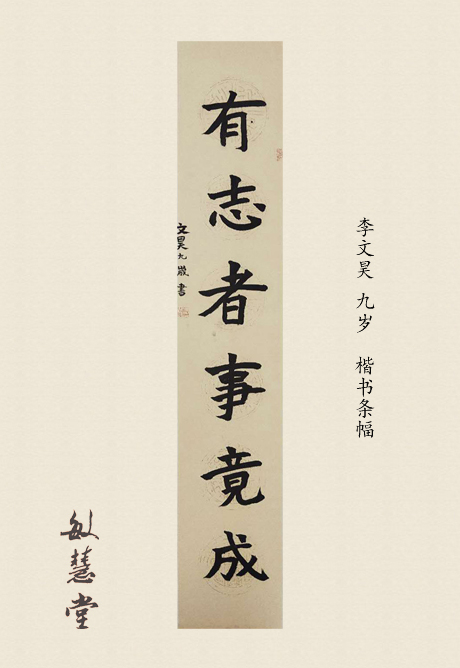 有志者事竟成
文昊九歲書
李文昊 九岁 楷书条幅
敏慧堂